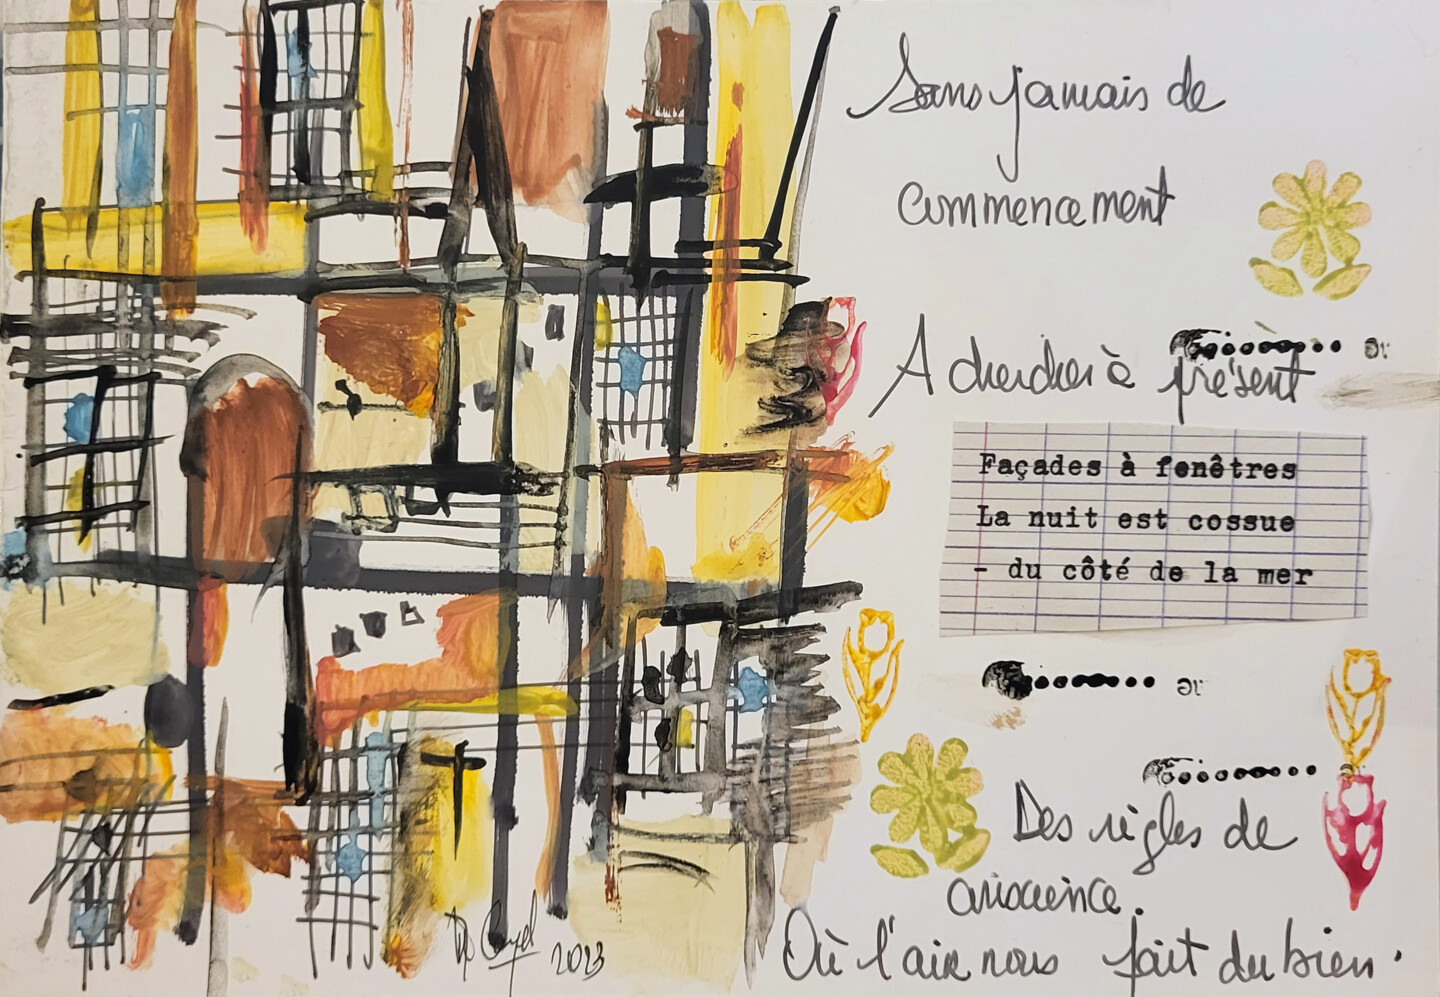 Sans jamais de
commencement
A chercher à présent
Façades à fenêtres
La nuit est cossue
- du côté de la mer
Des règles de
Où l'air nous fait du bien.
2023